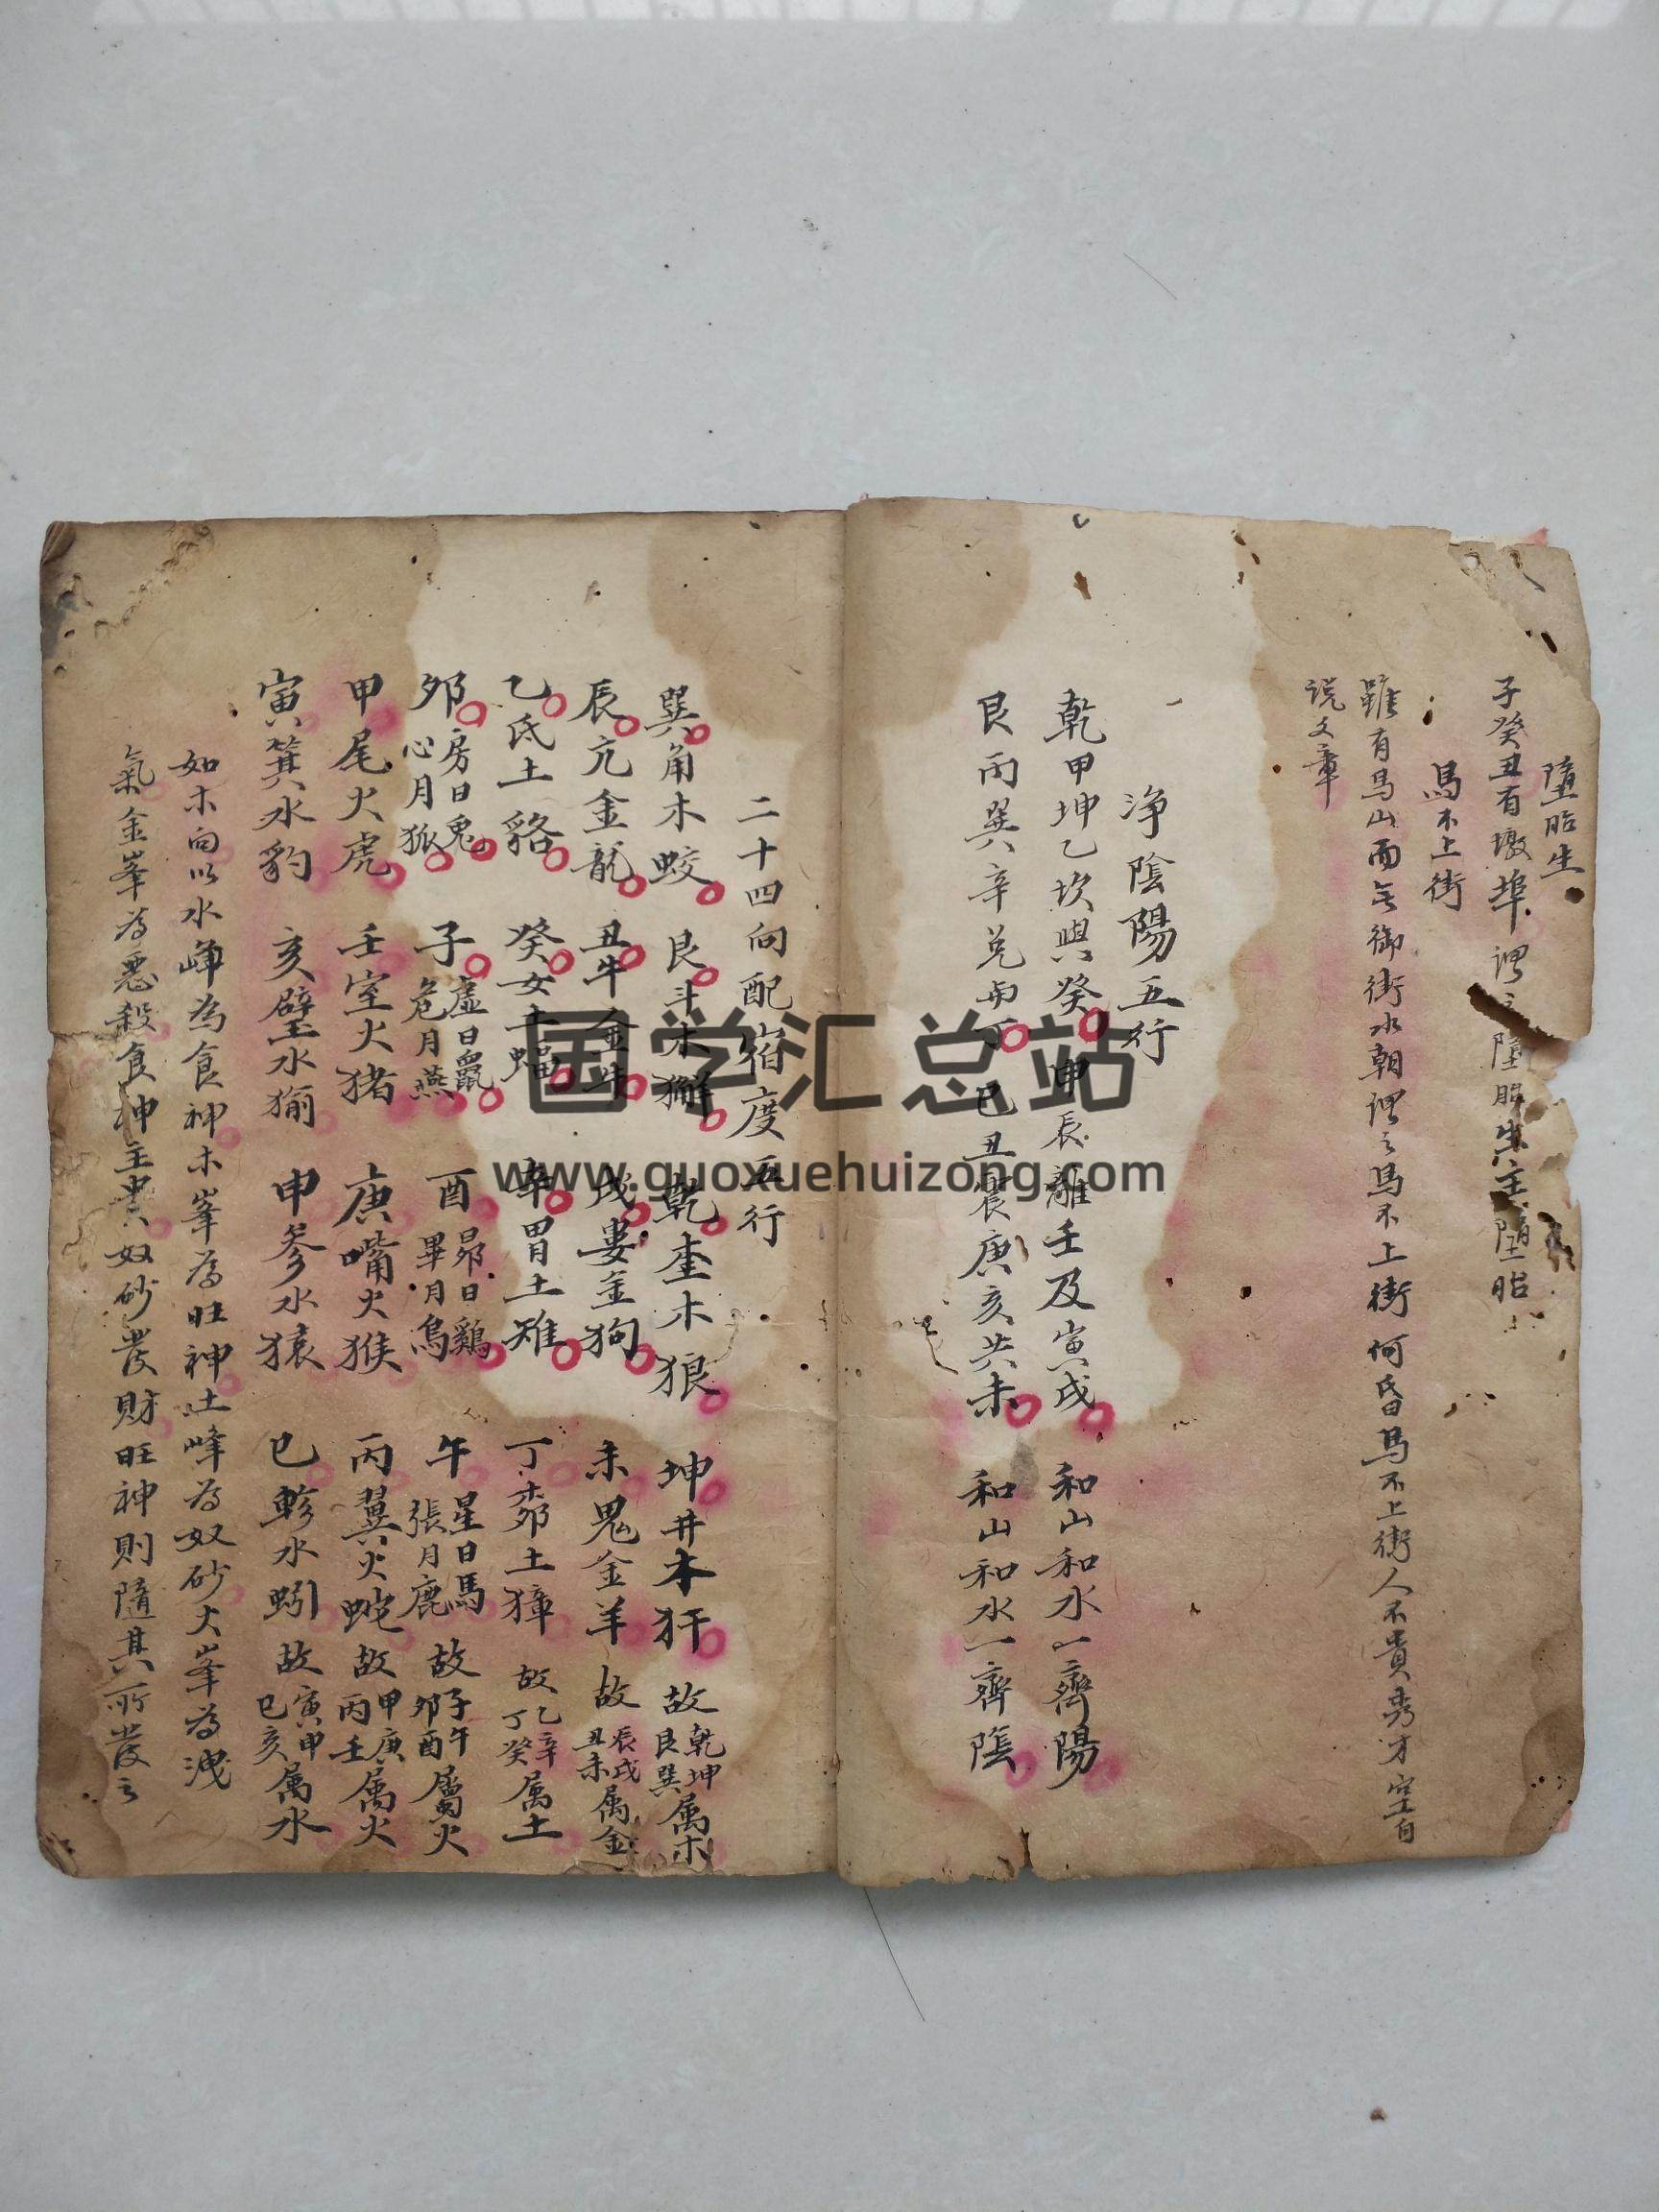 墮胎生
子癸丑有墩埠謂之墮胎生主墮胎
馬不上街
雖有馬山而無御街水朝謂之馬不上街何昏馬不上街人不貴秀才空自
説文章
浄陰陽五行
乾甲坤乙坎與癸申辰離壬及寅戌和山和水一齊陽
艮丙巽辛兑與丁巳丑震庚亥共未和山和水一齊陰
二十四向配宿度五行
巽角木蛟艮斗木獬乾奎木狼坤井木犴故乾坤艮巽属木
辰亢金龍丑牛金牛戌婁金狗未鬼金羊故辰戌丑未属金
乙氐土貉癸女土蝠辛胃土雉丁柳土獐故乙辛丁癸属土
夘房日兔心月狐子虚日鼠危月燕酉昴日鷄畢月烏午星日馬張月鹿故子午夘酉屬火
甲尾火虎壬室火猪庚嘴火猴丙翼火蛇故甲庚丙壬属火
寅箕水豹亥壁水㺄申参水猿巳軫水蚓故寅申巳亥属水
如木向以水峰為食神木峯為旺神土峰為奴砂火峯為洩
氣金峯為惡殺食神主貴奴砂發財旺神則隨其所發之
国学汇总站
www.guoxuehuizong.com